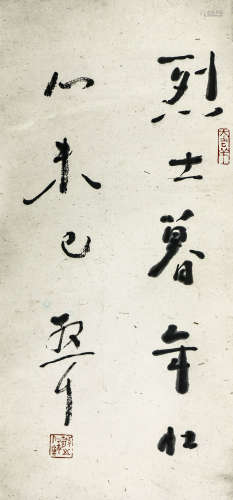 烈士暮年壮
心未已